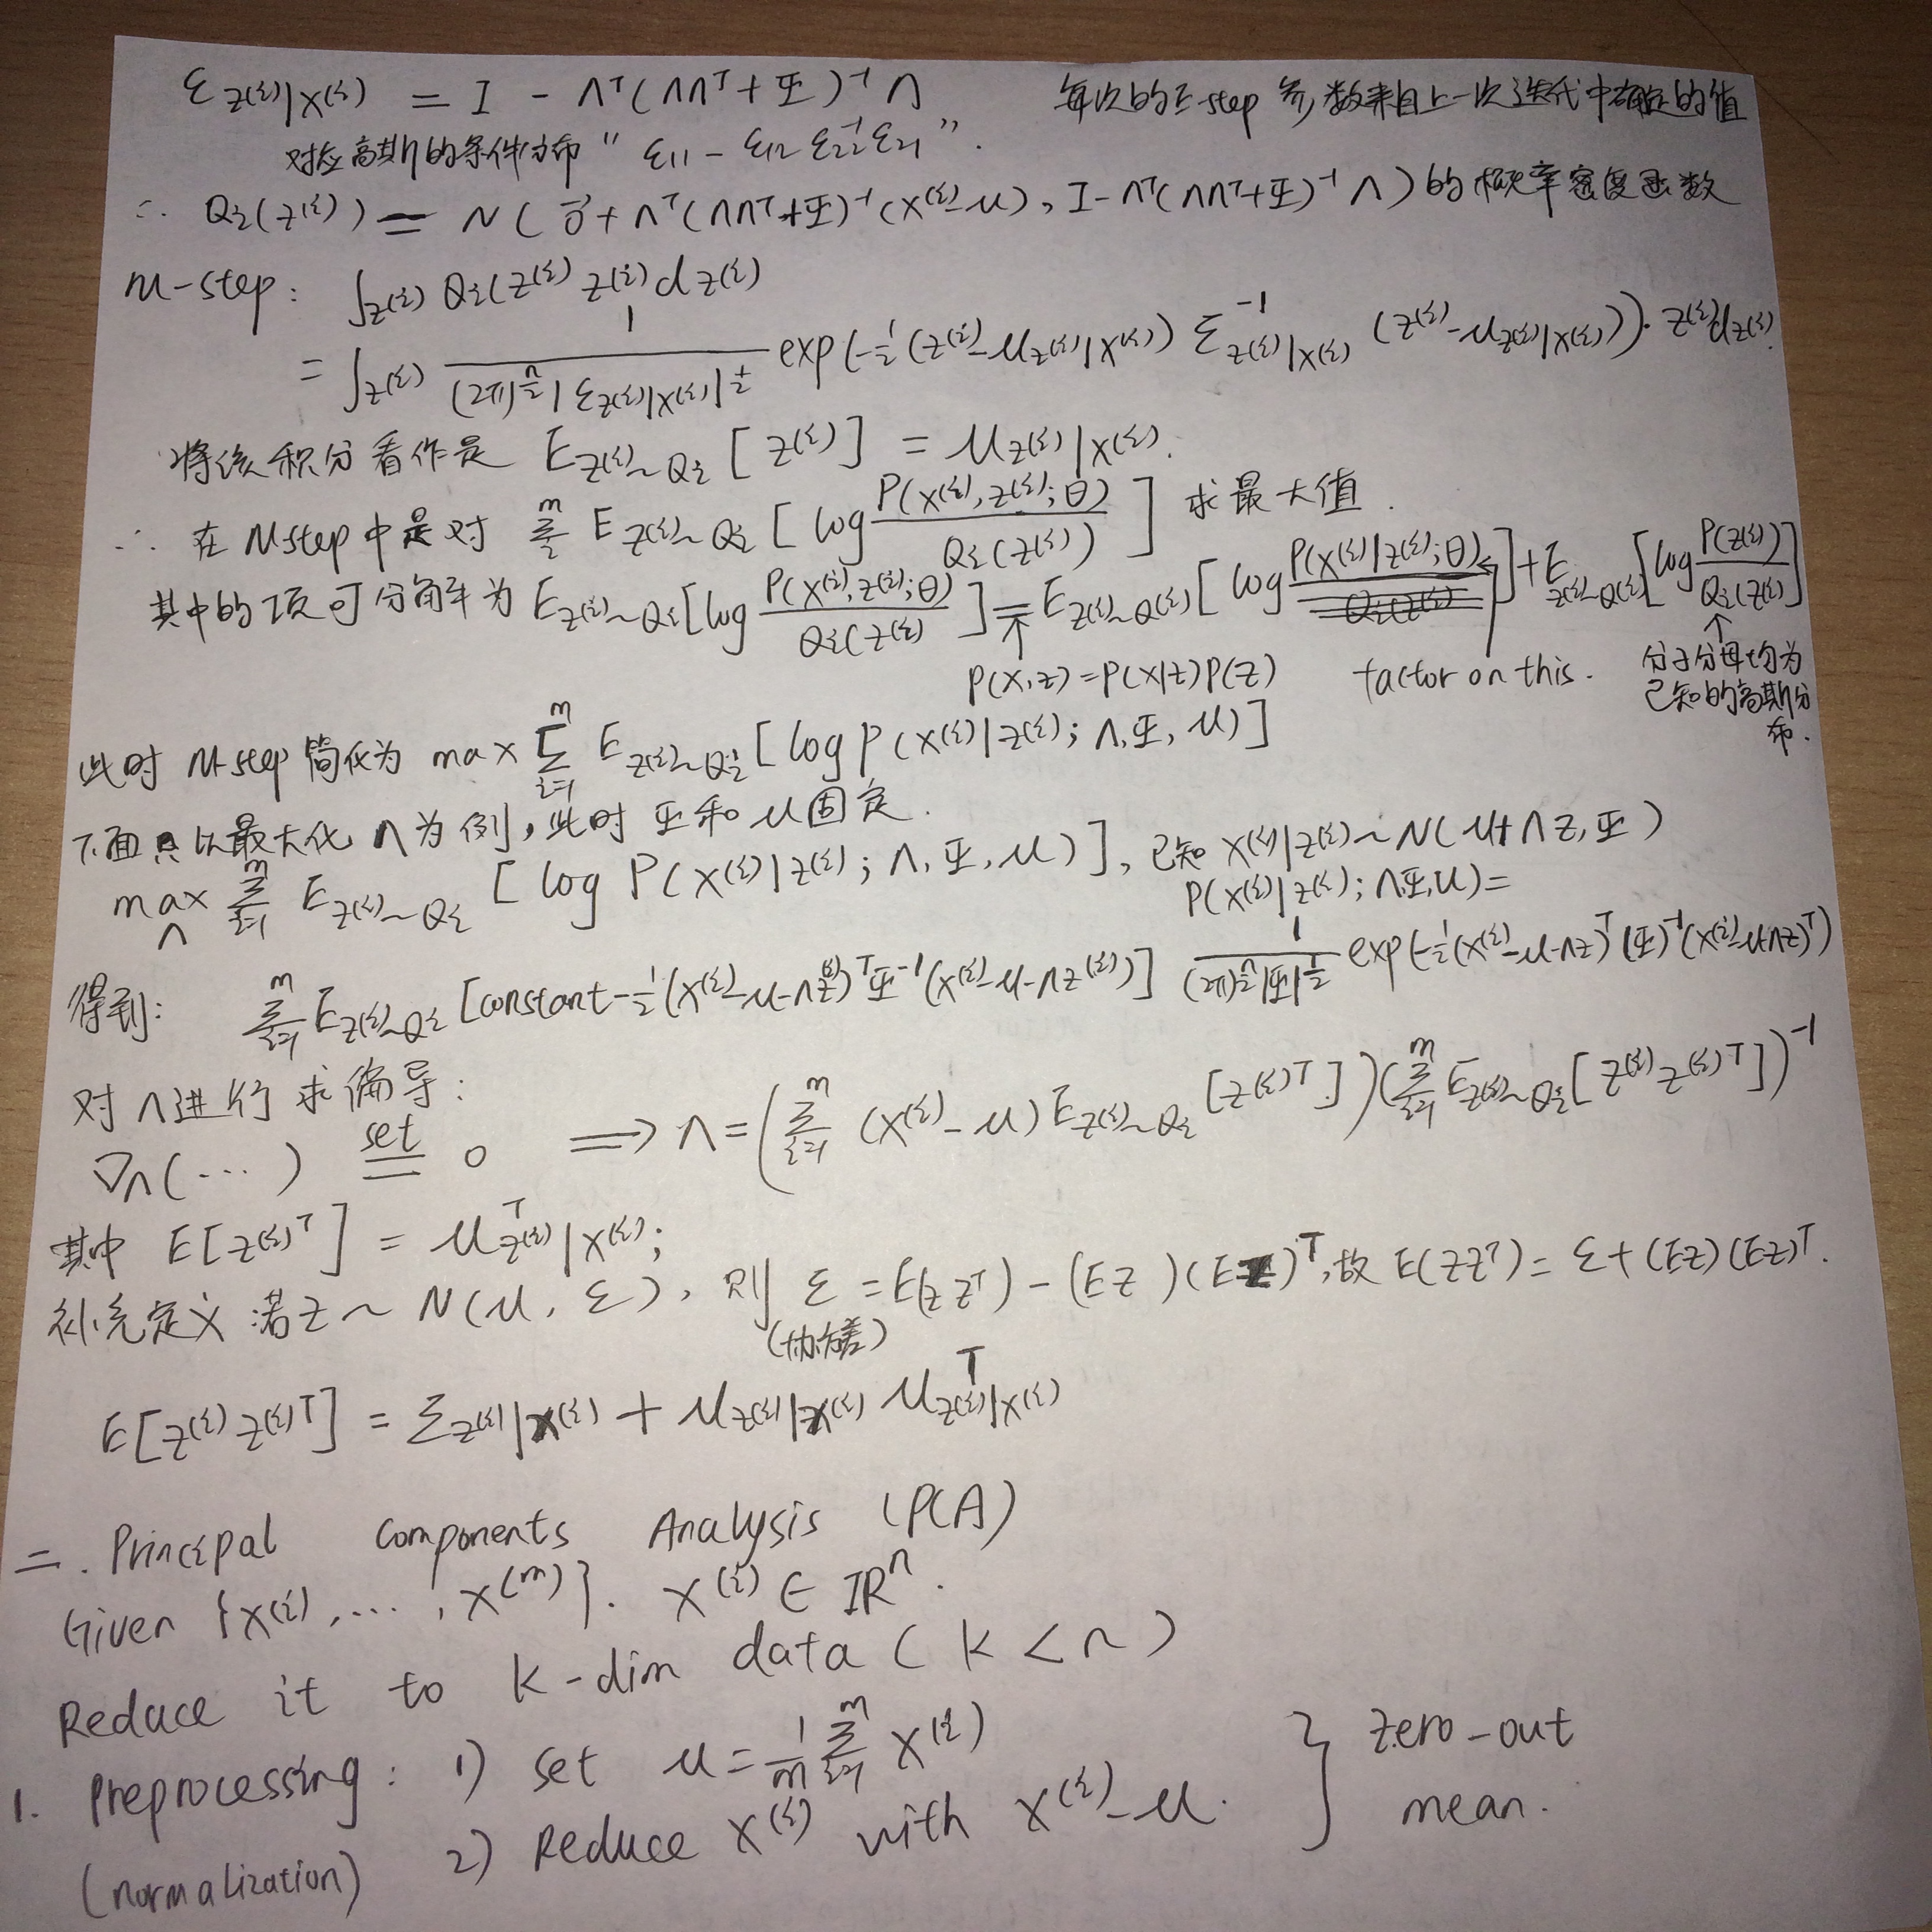 Σz(i)|x(i) = I - Λᵀ(ΛΛᵀ+Ψ)⁻¹Λ 每次的E-step 参数来自上一次迭代中确定的值
对应高斯的条件分布 " Σ11 - Σ12 Σ22⁻¹ Σ21 ".
∴ Qi(z(i)) = N( 0⃗ + Λᵀ(ΛΛᵀ+Ψ)⁻¹(x(i)-μ), I-Λᵀ(ΛΛᵀ+Ψ)⁻¹Λ ) 的概率密度函数
M-step: ∫z(i) Qi(z(i) z(i) dz(i)
= ∫z(i) 1/((2π)^(n/2) |Σz(i)|x(i)|^(1/2)) exp(-1/2 (z(i)-μz(i)|x(i)) Σ⁻¹z(i)|x(i) (z(i)-μz(i)|x(i)))·z(i)dz(i).
将该积分看作是 Ez(i)~Qi [ z(i) ] = μz(i)|x(i).
∴ 在M-step中是对 Σᵐi Ez(i)~Qi [ log P(x(i),z(i);θ)/Qi(z(i)) ] 求最大值.
其中的项可分解为 Ez(i)~Qi[log P(x(i),z(i);θ)/Qi(z(i)] = Ez(i)~Q(i) [ log P(x(i)|z(i);θ) ] + Ez(i)~Q(i) [log P(z(i))/Qi(z(i)]
↑ P(x,z)=P(x|z)P(z) factor on this. ↑ 分子分母均为
已知的高斯分
布.
此时 M-step 简化为 max Σᵐi=1 Ez(i)~Qi [ log P(x(i)|z(i); Λ,Ψ,μ) ]
下面只以最大化Λ为例,此时 Ψ和μ固定.
max Λ Σᵐi=1 Ez(i)~Qi [ log P(x(i)|z(i); Λ,Ψ,μ) ], 已知 x(i)|z(i) ~ N(μ+Λz, Ψ)
P(x(i)|z(i); Λ,Ψ,μ)=
得到: Σᵐi=1 Ez(i)~Qi [constant-1/2(x(i)-μ-Λz(i))ᵀΨ⁻¹(x(i)-μ-Λz(i))] 1/((2π)^(n/2)|Ψ|^(1/2)) exp(-1/2(x(i)-μ-Λz)ᵀ(Ψ)⁻¹(x(i)-μ-Λz)ᵀ)
对Λ进行求偏导:
∇Λ(...) set= 0 ⟹ Λ=(Σᵐi=1 (x(i)-μ) Ez(i)~Qi [z(i)ᵀ])(Σᵐi=1 Ez(i)~Qi[z(i) z(i)ᵀ])⁻¹
其中 E[z(i)ᵀ] = μᵀz(i)|x(i);
补充定义 若z ~ N(μ, Σ), 则 Σ = E(zzᵀ) - (Ez)(Ez)ᵀ, 故 E(zzᵀ) = Σ+(Ez)(Ez)ᵀ.
(协方差)
E[z(i) z(i)ᵀ] = Σz(i)|x(i) + μz(i)|x(i) μᵀz(i)|x(i)
二. Principal Components Analysis (PCA)
Given {x(i),...,x(m)}. x(i) ∈ IRⁿ.
Reduce it to k-dim data ( k < n )
1. Preprocessing: 1) set μ = 1/m Σᵐi=1 x(i) } zero-out
(normalization) 2) Reduce x(i) with x(i)-μ. mean.